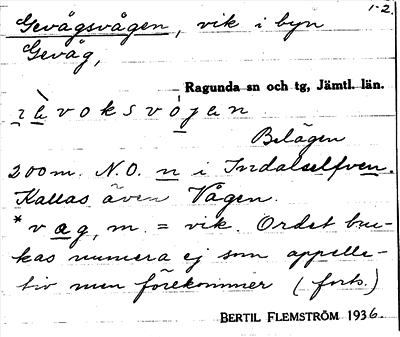 1-2.
Gevågsvågen, vik i byn
Gevåg,
Ragunda sn och tg, Jämtl. län.
Belägen
200 m. N.O. n i Indalselfven.
Kallas även Vågen.
* våg, m. = vik. Ordet bru-
kas numera ej som appella-
tiv men förekommer (forts.)
BERTIL FLEMSTRÖM 1936.